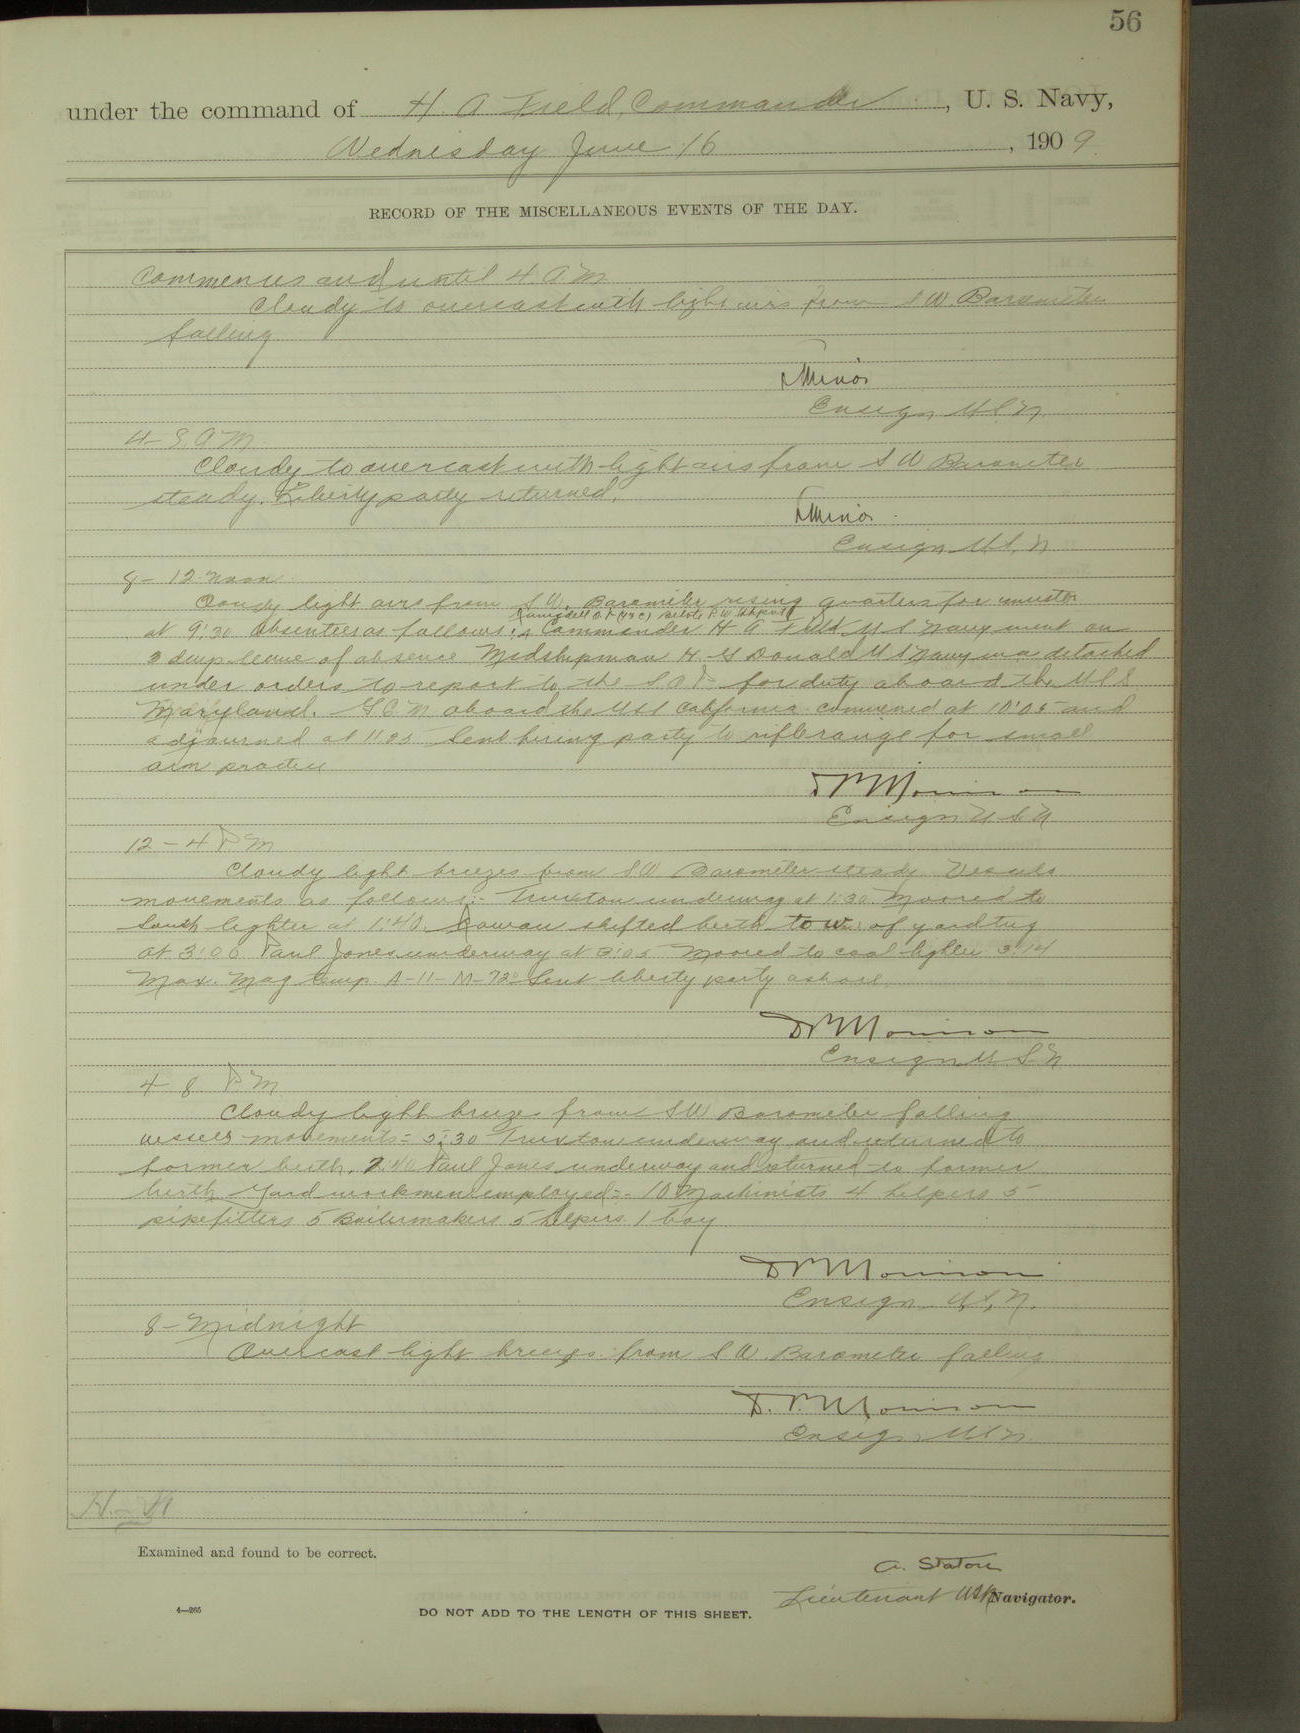 56
under the command of H. A Field, Commander, U. S. Navy,
Wednesday June 16, 1909
RECORD OF THE MISCELLANEOUS EVENTS OF THE DAY.
Commences and until 4 A M
Cloudy to overcast with light airs from S W. Barometer
falling
Minor
Ensign U S N.
4 - 8 A M
Cloudy to overcast with light airs from S W Barometer
steady. Liberty party returned.
Minor
Ensign U S. N
8 - 12 Noon
Cloudy light airs from S W. Barometer rising quarters for muster
at 9:30 absentees as follows: Commander H A Field U S Navy went on
3 days leave of absence Midshipman H. G Donald U S Navy was detached
under orders to report to the for duty aboard the U S S
Maryland. G C M aboard the U S S California convened at 10:05 and
adjourned at 11:25 Sent firing party to rifle range for small
arm practice
D P Morrison
Ensign U S N
12 - 4 P M
Cloudy light breezes from S W Barometer steady Vessels
movements as follows:- Truxton underway at 1:30. Moored to
South lighter at 1:40. shifted berth tow of yard tug
at 3:06 Paul Jones underway at 3:05 Moored to coal lighter 3:14
Max. Mag temp. A-11-M-72° Sent liberty party ashore.
D P Morrison
Ensign U. S. N
4 - 8 P M
Cloudy light breezes from S W Barometer falling
vessels movements = 5:30 Truxton underway and returned to
former berth. 7:40 Paul Jones underway and returned to former
berth. Yard workmen employed:- 10 Machinists 4 helpers 5
pipefitters 5 Boilermakers 5 helpers 1 boy
D P Morrison
Ensign U. S. N.
8 - Midnight
Overcast light breezes from S W. Barometer falling
D. P. Morrison
Ensign U S N
Examined and found to be correct.
A. Staton
Lieutenant USN Navigator.
4—265
DO NOT ADD TO THE LENGTH OF THIS SHEET.